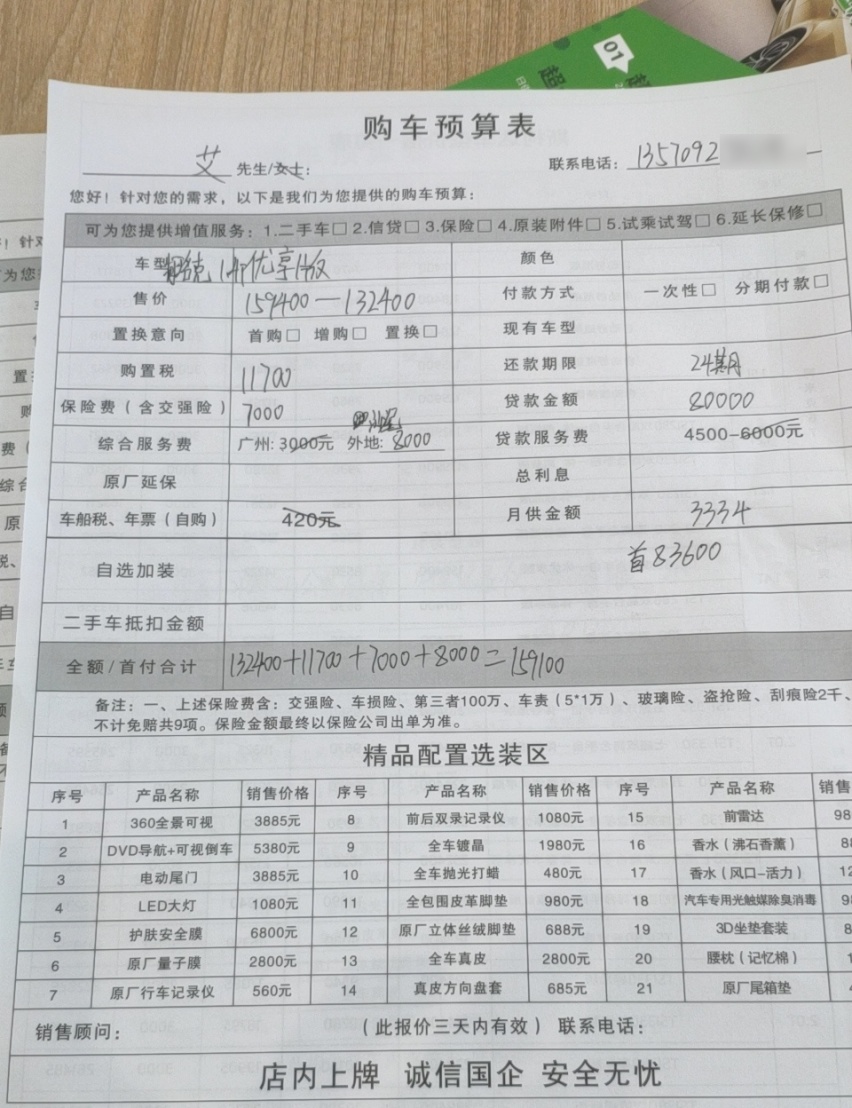 01
超
购车预算表
艾 先生/女士: 联系电话: 1357092
您好!针对您的需求,以下是我们为您提供的购车预算:
可为您提供增值服务:1.二手车□ 2.信贷□ 3.保险□ 4.原装附件□ 5.试乘试驾□ 6.延长保修□
车型 优享 颜色
售价 159400—132400 付款方式 一次性□ 分期付款□
置换意向 首购□ 增购□ 置换□ 现有车型
购置税 11700 还款期限 24期
保险费(含交强险) 7000 贷款金额 80000
综合服务费 广州: 3000元 外地: 8000 贷款服务费 4500-6000元
原厂延保 总利息
车船税、年票(自购) 420元 月供金额 3334
自选加装 首83600
二手车抵扣金额
全额/首付合计 132400+11700+7000+8000=159100
备注:一、上述保险费含:交强险、车损险、第三者100万、车责(5*1万)、玻璃险、盗抢险、刮痕险2千、
不计免赔共9项。保险金额最终以保险公司出单为准。
精品配置选装区
序号 产品名称 销售价格 序号 产品名称 销售价格 序号 产品名称 销售
1 360全景可视 3885元 前后双录记录仪 1080元 15 前雷达 98
2 DVD导航+可视倒车 5380元 9 全车镀晶 1980元 16 香水(沸石香薰) 88
3 电动尾门 3885元 10 全车抛光打蜡 480元 17 香水(风口-活力) 12
4 LED大灯 1080元 11 全包围皮革脚垫 980元 18 汽车专用光触媒除臭消毒 98
5 护肤安全膜 6800元 12 原厂立体丝绒脚垫 688元 19 3D坐垫套装 8
6 原厂量子膜 2800元 13 全车真皮 2800元 20 腰枕(记忆棉) 1
7 原厂行车记录仪 560元 14 真皮方向盘套 685元 21 原厂尾箱垫
销售顾问: (此报价三天内有效) 联系电话:
店内上牌 诚信国企 安全无忧